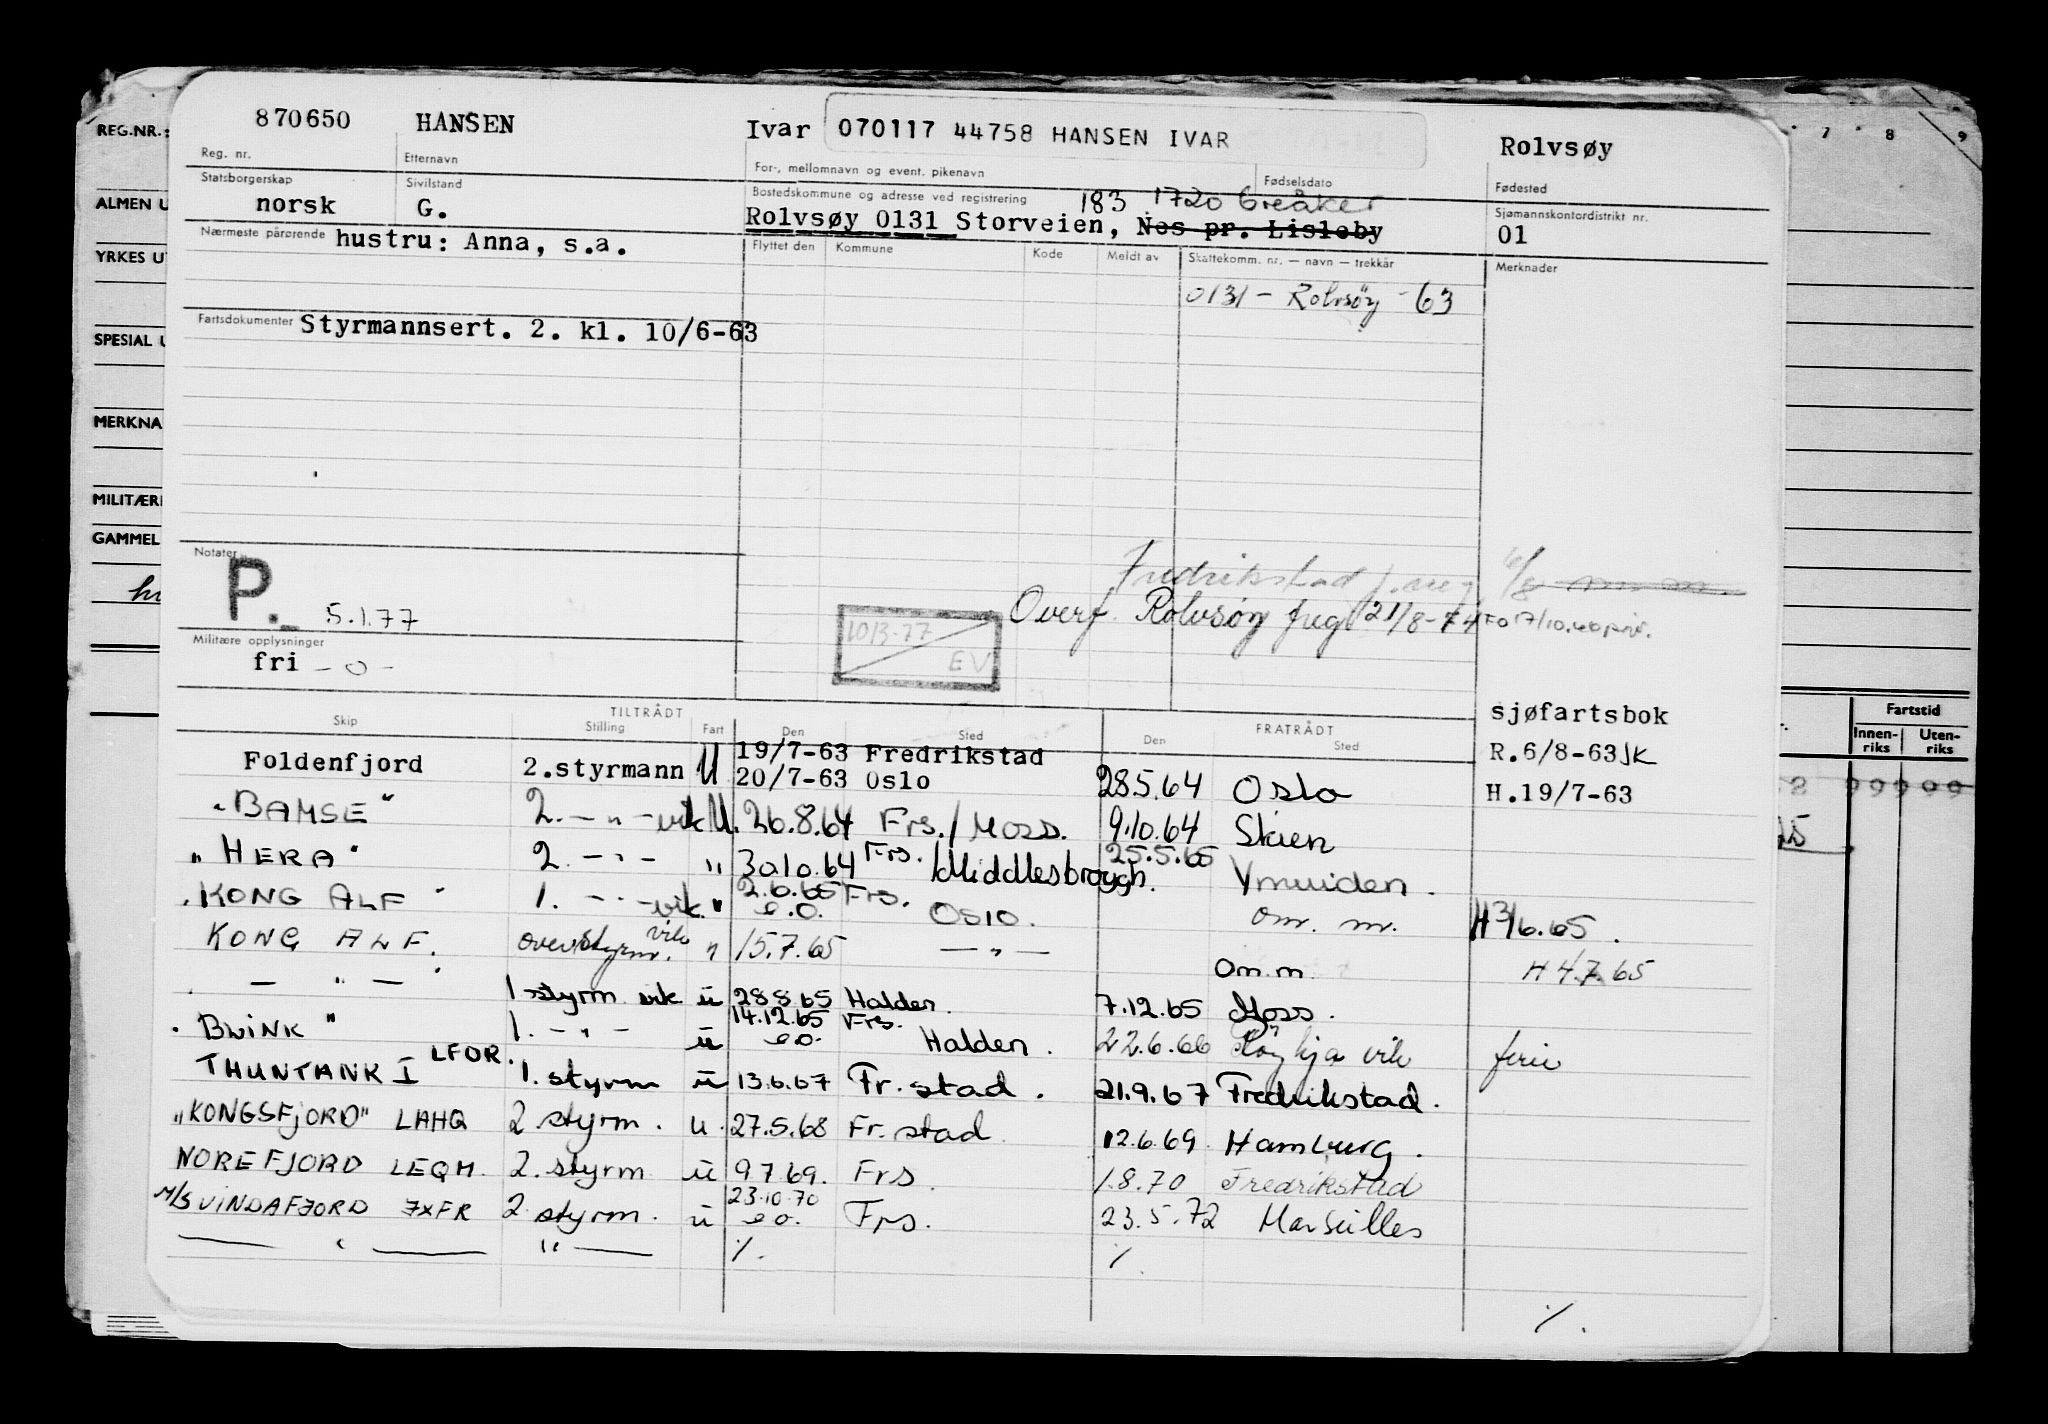 REG.NR.:
ALMEN U
YRKES U
SPESIAL U
MERKNA
MILITÆRE
GAMMEL
870650 HANSEN Ivar 070117 44758 HANSEN IVAR Rolvsøy
Reg. nr. Etternavn For-, mellomnavn og event. pikenavn Fødselsdato Fødested
Statsborgerskap Sivilstand Bostedskommune og adresse ved registrering Sjømannskontordistrikt nr.
183 1720 Greåker
norsk G. Rolvsøy 0131 Storveien, Nes pr. Lisleby 01
Nærmeste pårørende hustru: Anna, s.a. Flyttet den Kommune Kode Meldt av Skattekomm. nr. — navn — trekkår Merknader
0131 - Rolvsøy - 63
Fartsdokumenter Styrmannsert. 2. kl. 10/6-63
Notater
P. 5.1.77
Fredrikstad
Overf. Rolvsøy freg 21/8-74
1013-77
EV
Militære opplysninger
fri - o -
TILTRÅDT FRATRÅDT
Skip Stilling Fart Den Sted Den Sted
sjøfartsbok
R.6/8-63 JK
H.19/7-63
Foldenfjord 2.styrmann U 19/7-63 Fredrikstad
20/7-63 Oslo 28.5.64 Oslo
"BAMSE" 2. — " — vik U. 26.8.64 Frs./Moss. 9.10.64 Skien
"HERA" 2. — " — " 30.10.64 Frs. /Middlesbrough. 25.5.65 Ymuiden.
"KONG ALF" 1. — " — vik. " 2.6.65 Frs.
e.o. Oslo. om. m. H 3/6.65.
KONG ALF. overstyrm. vik " 15.7.65 — " — Om.m. H 4.7.65
— " — 1 styrm vik u 28.8.65 Halden. 7.12.65 Moss.
"BLINK" 1. — " — u 14.12.65 Frs.
e.o. Halden. 22.6.66 vik ferie
THUNTANK I LFOR. 1. styrm u 13.6.67 Fr.stad. 21.9.67 Fredrikstad.
"KONGSFJORD" LAHQ 2 styrm. u. 27.5.68 Fr.stad 12.6.69 Hamburg.
NOREFJORD LEQM. 2. styrm u 9.7.69. Frs. 1.8.70 Fredrikstad
M/S VINDAFJORD JXFR 2 styrm. u 23.10.70
e.o. Frs. 23.5.72 Marseilles
— " — " — ⁒. ⁒
⁒.
7 8 9
Fartstid
Innen-riks Uten-riks